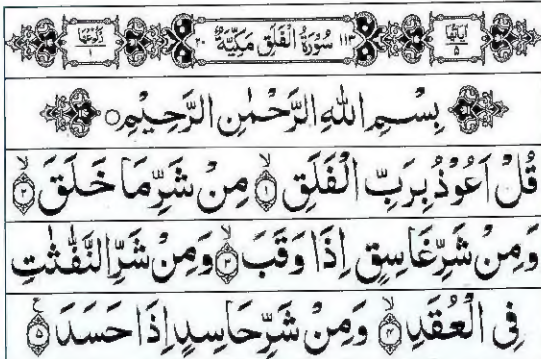 اٰيَاتُهَا ٥ ١١٣ سُوْرَةُ الْفَلَقِ مَكِّيَّةٌ ٢٠ رُكُوْعُهَا ١
بِسْمِ اللهِ الرَّحْمٰنِ الرَّحِيْمِ ○
قُلْ اَعُوْذُ بِرَبِّ الْفَلَقِ ۙ﴿١﴾ مِنْ شَرِّ مَا خَلَقَ ۙ﴿٢﴾
وَمِنْ شَرِّ غَاسِقٍ اِذَا وَقَبَ ۙ﴿٣﴾ وَمِنْ شَرِّ النَّفّٰثٰتِ
فِى الْعُقَدِ ۙ﴿٤﴾ وَمِنْ شَرِّ حَاسِدٍ اِذَا حَسَدَ ﴿٥﴾ ع